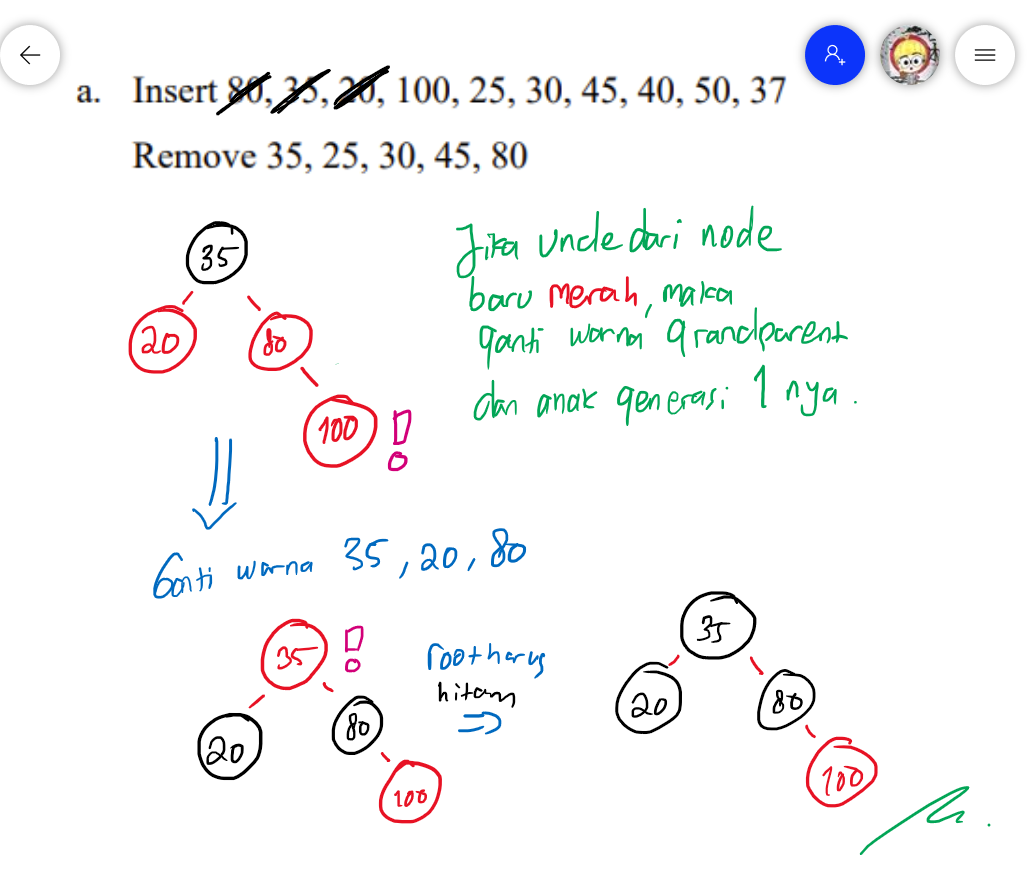 a. Insert 80, 35, 20, 100, 25, 30, 45, 40, 50, 37
Remove 35, 25, 30, 45, 80
35
20
80
100 !
Jika uncle dari node
baru merah, maka
ganti warna grandparent
dan anak generasi 1 nya.
Ganti warna 35, 20, 80
35 !
20
80
100
root harus
hitam
⇒
35
20
80
100